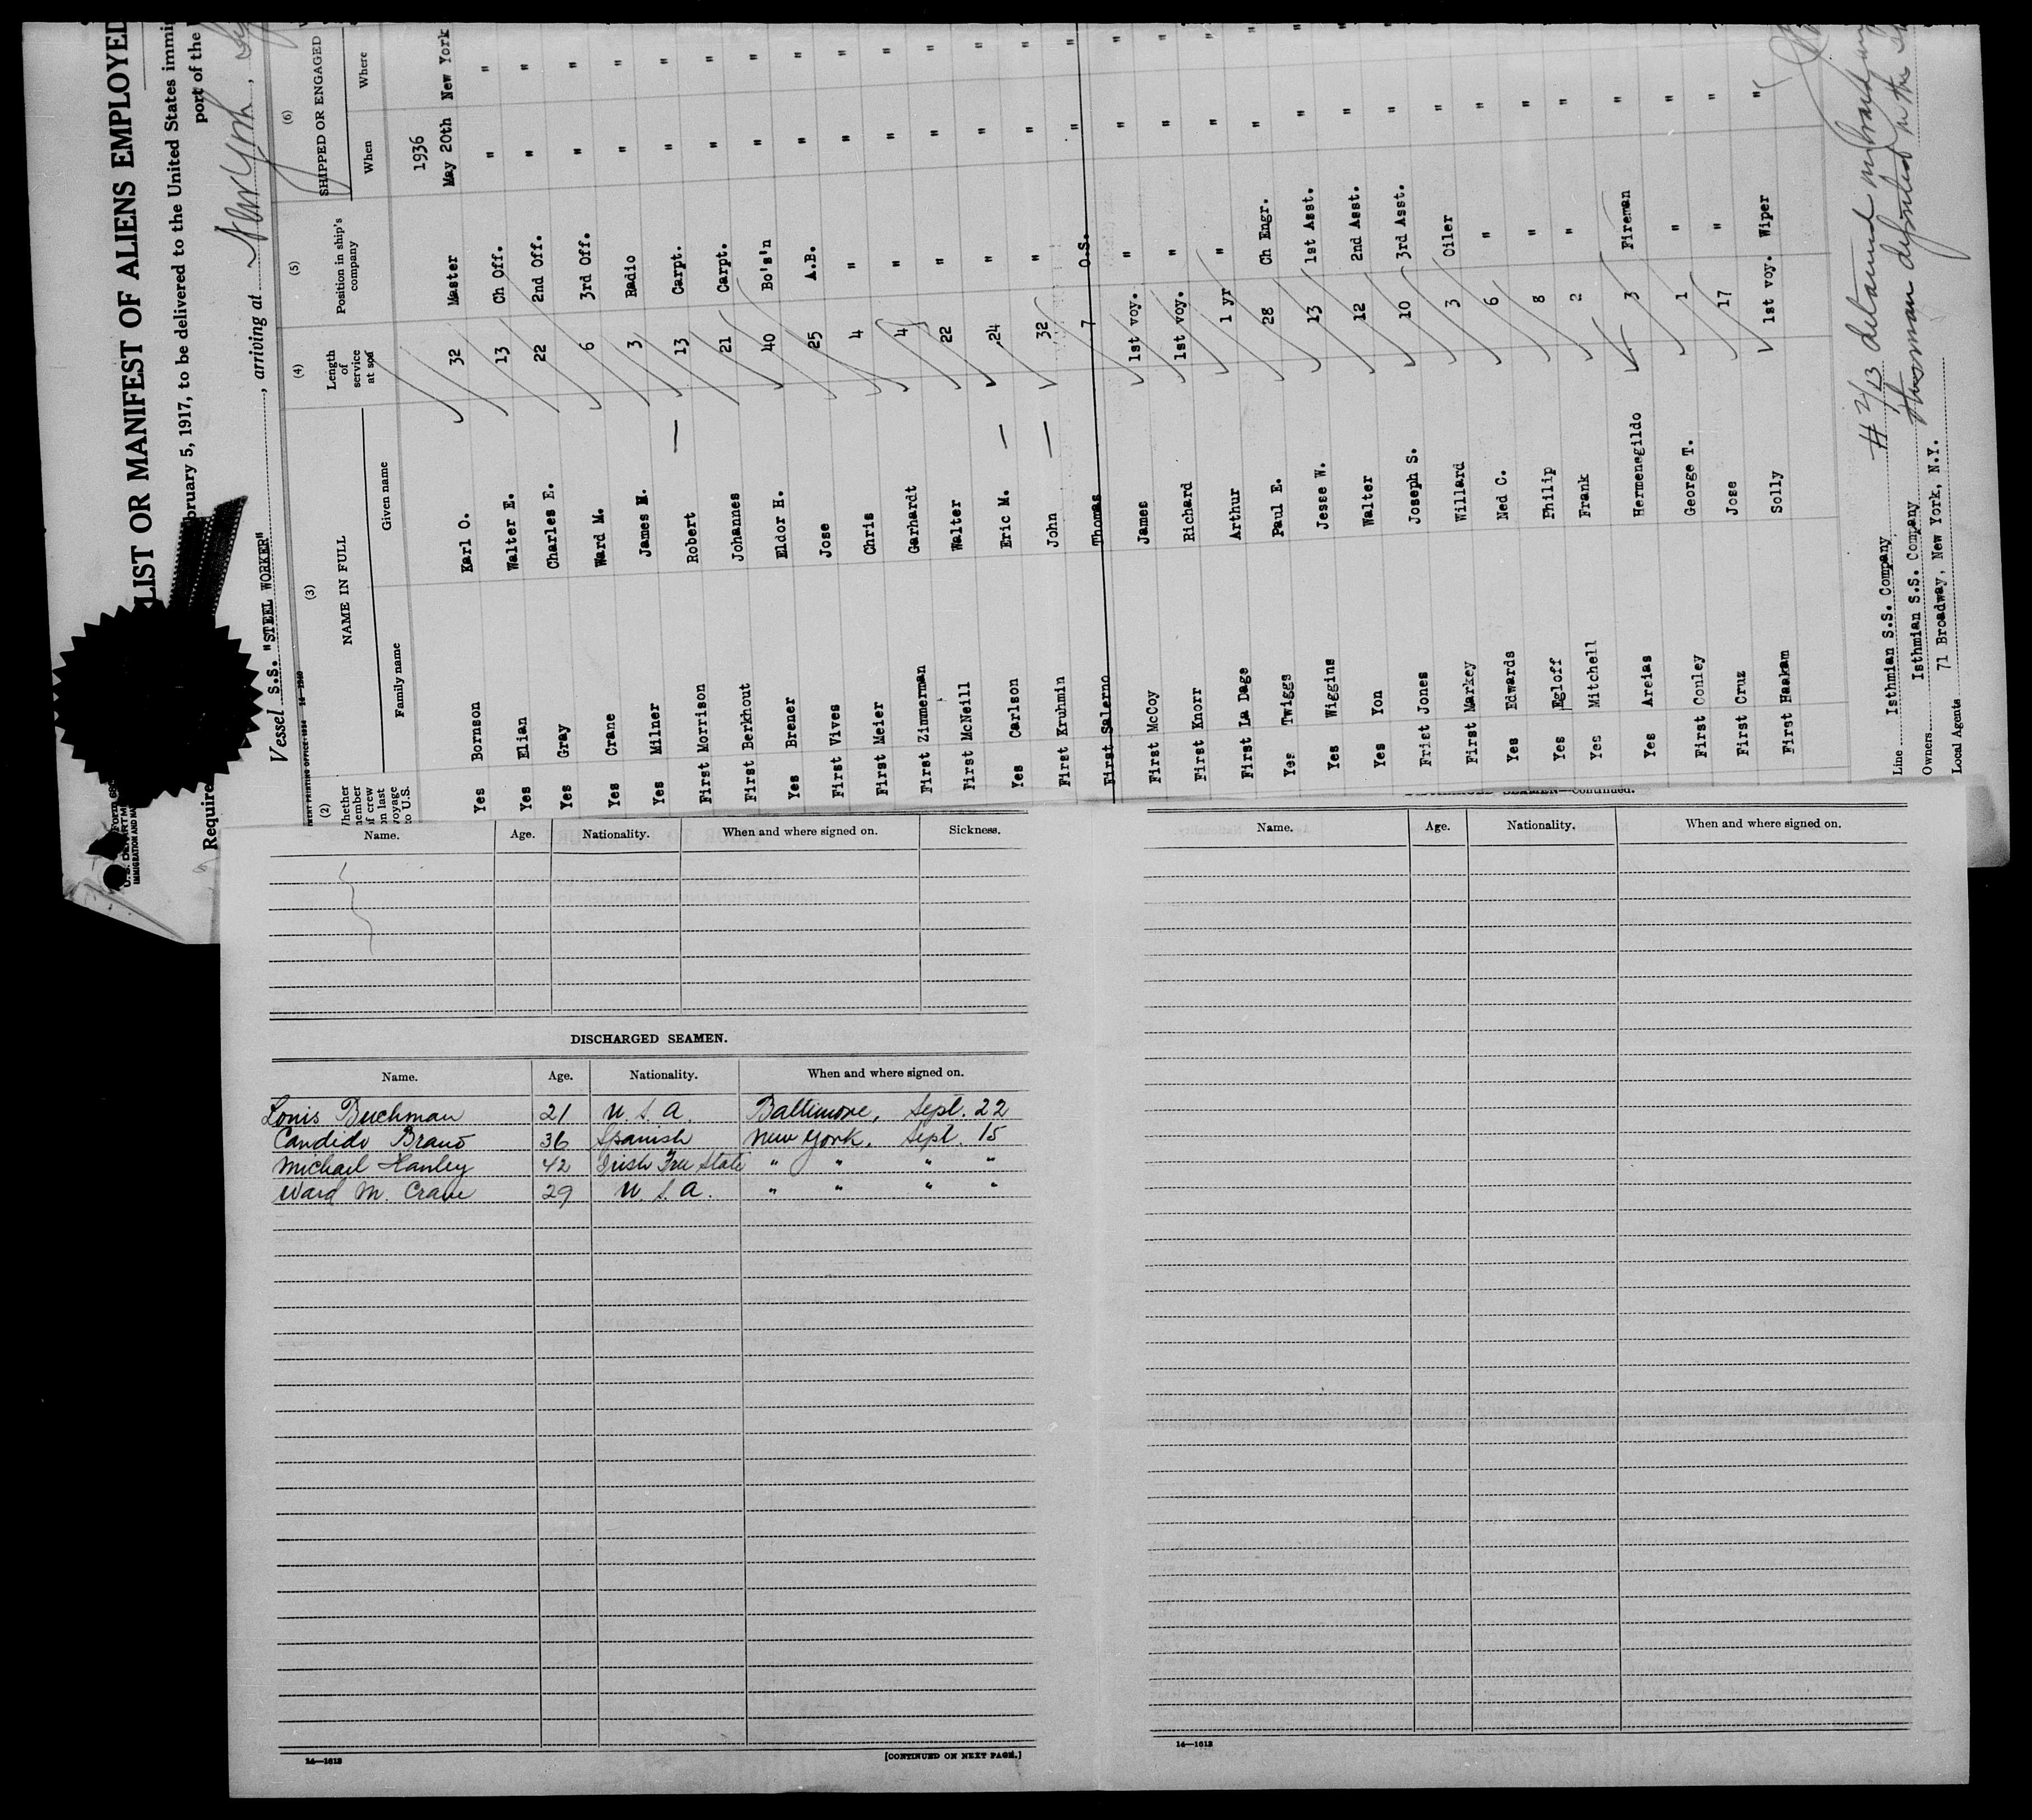 LIST OR MANIFEST OF ALIENS EMPLOYED
bruary 5, 1917, to be delivered to the United States immi
Require
port of the
Vessel S.S. "STEEL WORKER" , arriving at New York,
(2) (3) (4) (5) (6)
NAME IN FULL
SHIPPED OR ENGAGED
Family name Given name
Length of service at sea
Position in ship's company
When Where
1936
Yes Bornson Karl O. 32 Master May 20th New York
Yes Elian Walter E. 13 Ch Off. " "
Yes Gray Charles E. 22 2nd Off. " "
Yes Crane Ward M. 6 3rd Off. " "
Yes Milner James M. 3 Radio " "
First Morrison Robert — 13 Carpt. " "
First Berkhout Johannes 21 Carpt. " "
Yes Brener Eldor H. 40 Bo's'n " "
First Vives Jose 25 A.B. " "
First Meier Chris 4 " " "
First Zimmerman Garhardt 4 " " "
First McNeill Walter 22 " " "
Yes Carlson Eric M. — 24 " " "
First Kruhmin John — 32 " " "
First Salerno Thomas 7 O.S. " "
First McCoy James 1st voy. " " "
First Knorr Richard 1st voy. " " "
First La Dage Arthur 1 yr " " "
Yes Twiggs Paul E. 28 Ch Engr. " "
Yes Wiggins Jesse W. 13 1st Asst. " "
Yes Yon Walter 12 2nd Asst. " "
Frist Jones Joseph S. 10 3rd Asst. " "
First Markey Willard 3 Oiler "
Yes Edwards Ned C. 6 " "
Yes Egloff Philip 8 " "
Yes Mitchell Frank 2 " "
Yes Areias Hermenegildo 3 Fireman "
First Conley George T. 1 " "
First Cruz Jose 17 " "
First Haakam Solly 1st voy. Wiper "
# 2/13 detained on board
Line Isthmian S.S. Company
Owners Isthmian S.S. Company
Local Agents 71 Broadway, New York, N.Y.
Name. Age. Nationality. When and where signed on. Sickness.
DISCHARGED SEAMEN.
Name. Age. Nationality. When and where signed on.
Louis Buchman 21 U.S.A. Baltimore, Sept. 22
Candido Brano 36 Spanish New York. Sept. 15
Michael Hanley 42 Irish Free State " " " "
Ward M. Crane 29 U.S.A. " " " "
14—1613
[CONTINUED ON NEXT PAGE.]
DISCHARGED SEAMEN—Continued.
Name. Age. Nationality. When and where signed on.
14—1613